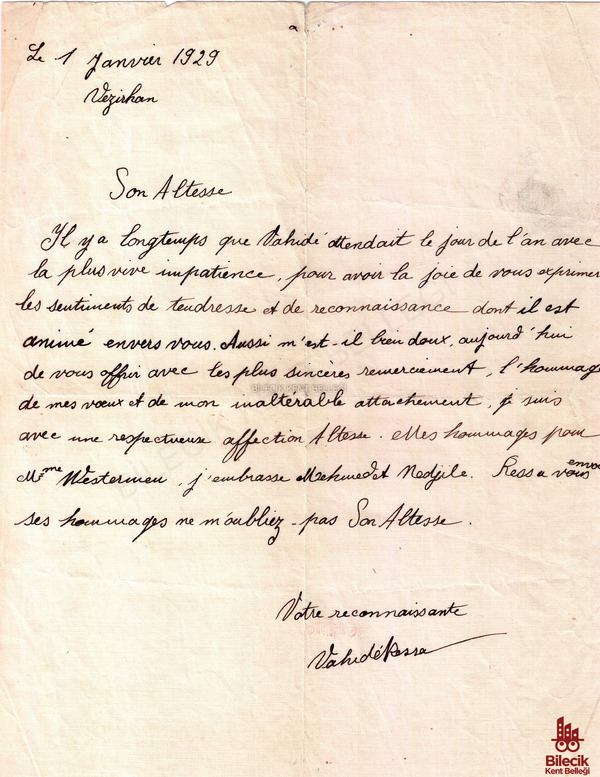 Le 1 Janvier 1929
Vezirhan
Son Altesse
Il y a longtemps que Vahidé attendait le jour de l'an avec
la plus vive impatience, pour avoir la joie de vous exprimer
les sentiments de tendresse et de reconnaissance dont il est
animé envers vous. Aussi m'est-il bien doux, aujourd'hui
de vous offrir avec les plus sincères remerciement, l'hommage
BİLECİK KENT BELLEĞİ
de mes vœux et de mon inaltérable attachement, je suis
avec une respectueuse affection Altesse. Mes hommages pour
Mme Westermen, j'embrasse Mehmed et Nedjile. Ressa vous envoi
ses hommages ne m'oubliez-pas Son Altesse.
Votre reconnaissante
Vahidé Ressa
Bilecik
Kent Belleği